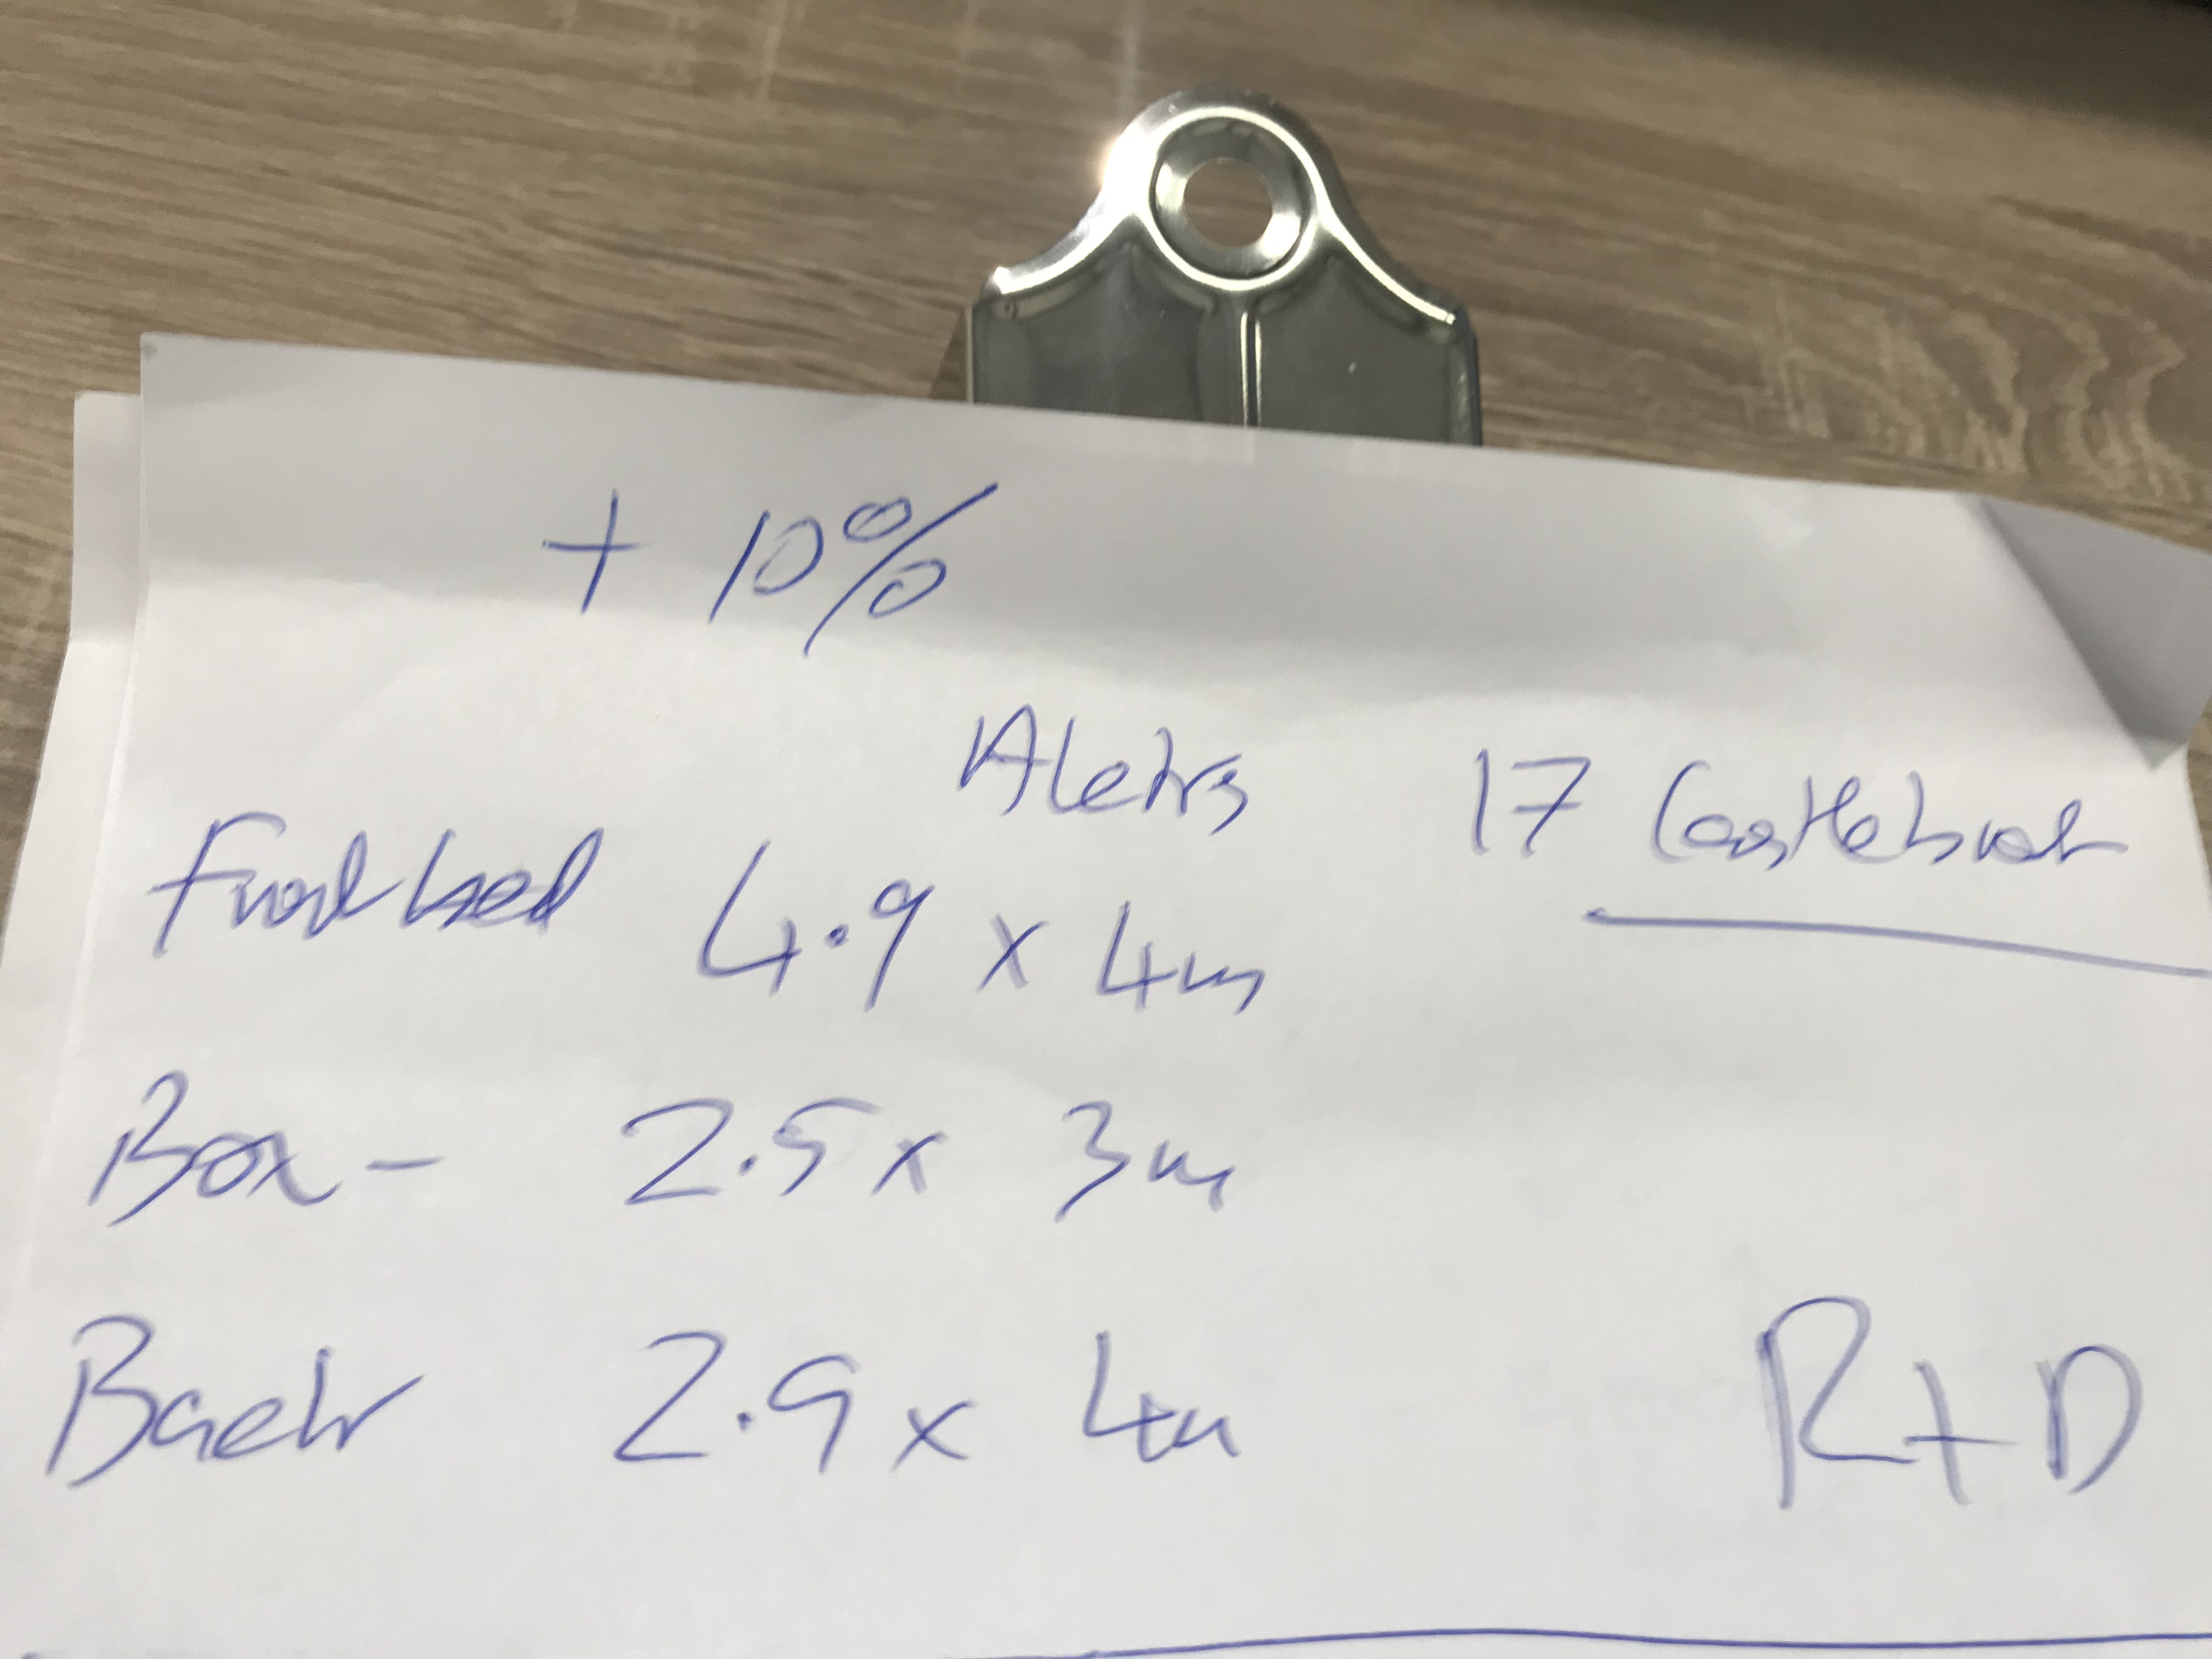 + 10%
17
Front bed 4.9 x 4m
Box - 2.5 x 3m
Back 2.9 x 4m
R+D